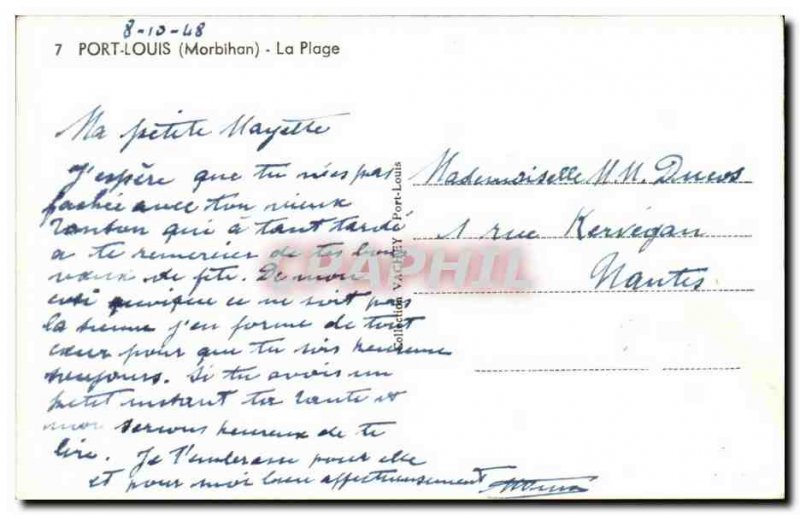 8-10-48
7 PORT-LOUIS (Morbihan) - La Plage
Ma petite Mayette
J'espère que tu n'es pas
fachée avec ton vieux
tonton qui a tant tardé
a te remercier de tes bons
vœux de fête. De mon
ce ne soit pas
la sienne j'en forme de tout
cœur pour que tu sois heureuse
toujours. Si tu avois un
petit instant ta tante et
moi serions heureux de te
lire. Je t'embrasse pour elle
et pour moi bien affectueusement
Mademoiselle M M. Ducos
1 rue Kervégan
Nantes
Collection VACHEY - Port-Louis
CPAPHIL